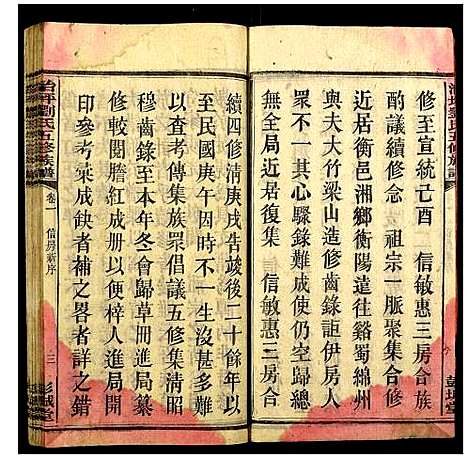 修至宣統己酉　信敏惠三房合族
酌議續修念　祖宗一脈聚集合修
近居衡邑湘鄉衡陽遠徃谿蜀綿州
與夫大竹梁山造修齒錄詎伊房人
眾不一集貲難成使仍空歸總
無全局近居復集　信敏惠二房合
續四修清庚戌告竣後二十餘年以
至民國庚午因時不一生齒甚多難
以查考傳集族眾倡議五修集清昭
穆齒錄至本年冬會歸草冊進局纂
修較閱謄紅成本便梓人進局開
印參考家成缺者補之畧者詳之錯
治坪劉氏五修族譜
卷一
信房新序
三
彭城堂